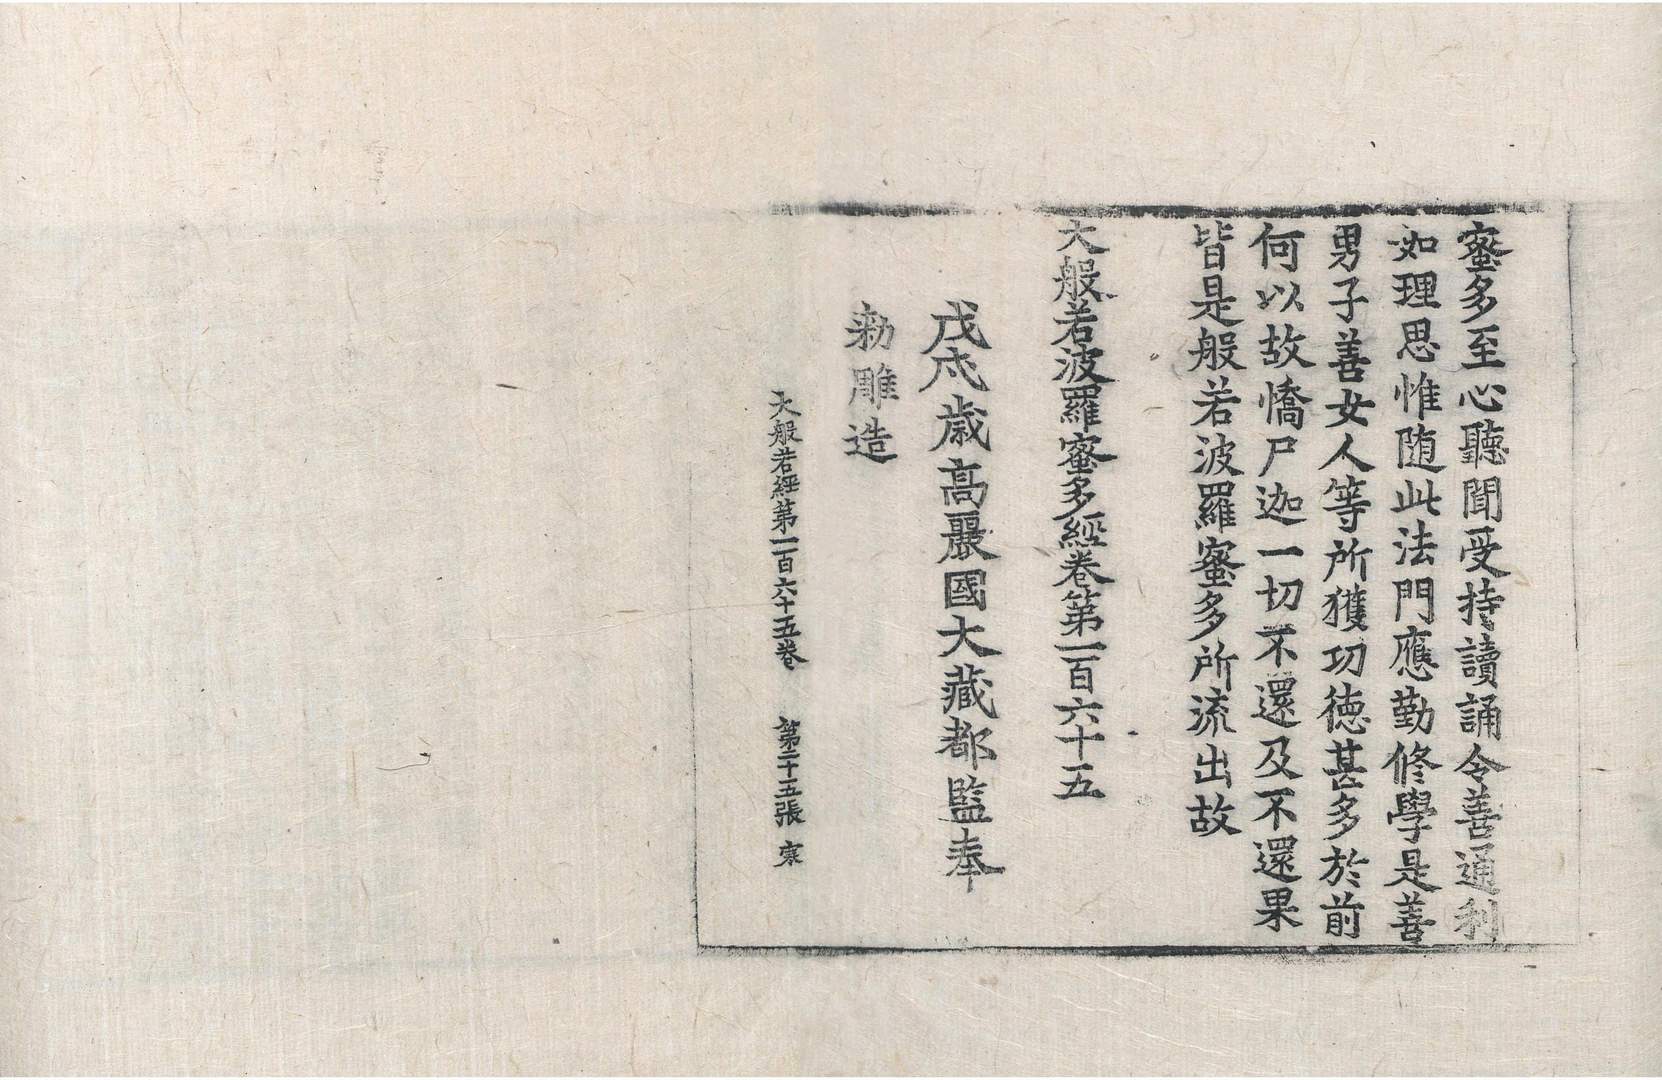 蜜多至心聽聞受持讀誦令善通利
如理思惟随此法門應勤修學是善
男子善女人等所獲功德甚多於前
何以故憍尸迦一切不還及不還果
皆是般若波羅蜜多所流出故
大般若波羅蜜多經卷第一百六十五
戊戌歲高麗國大藏都監奉
勅雕造
大般若經第一百六十五卷 第二十五張 寒